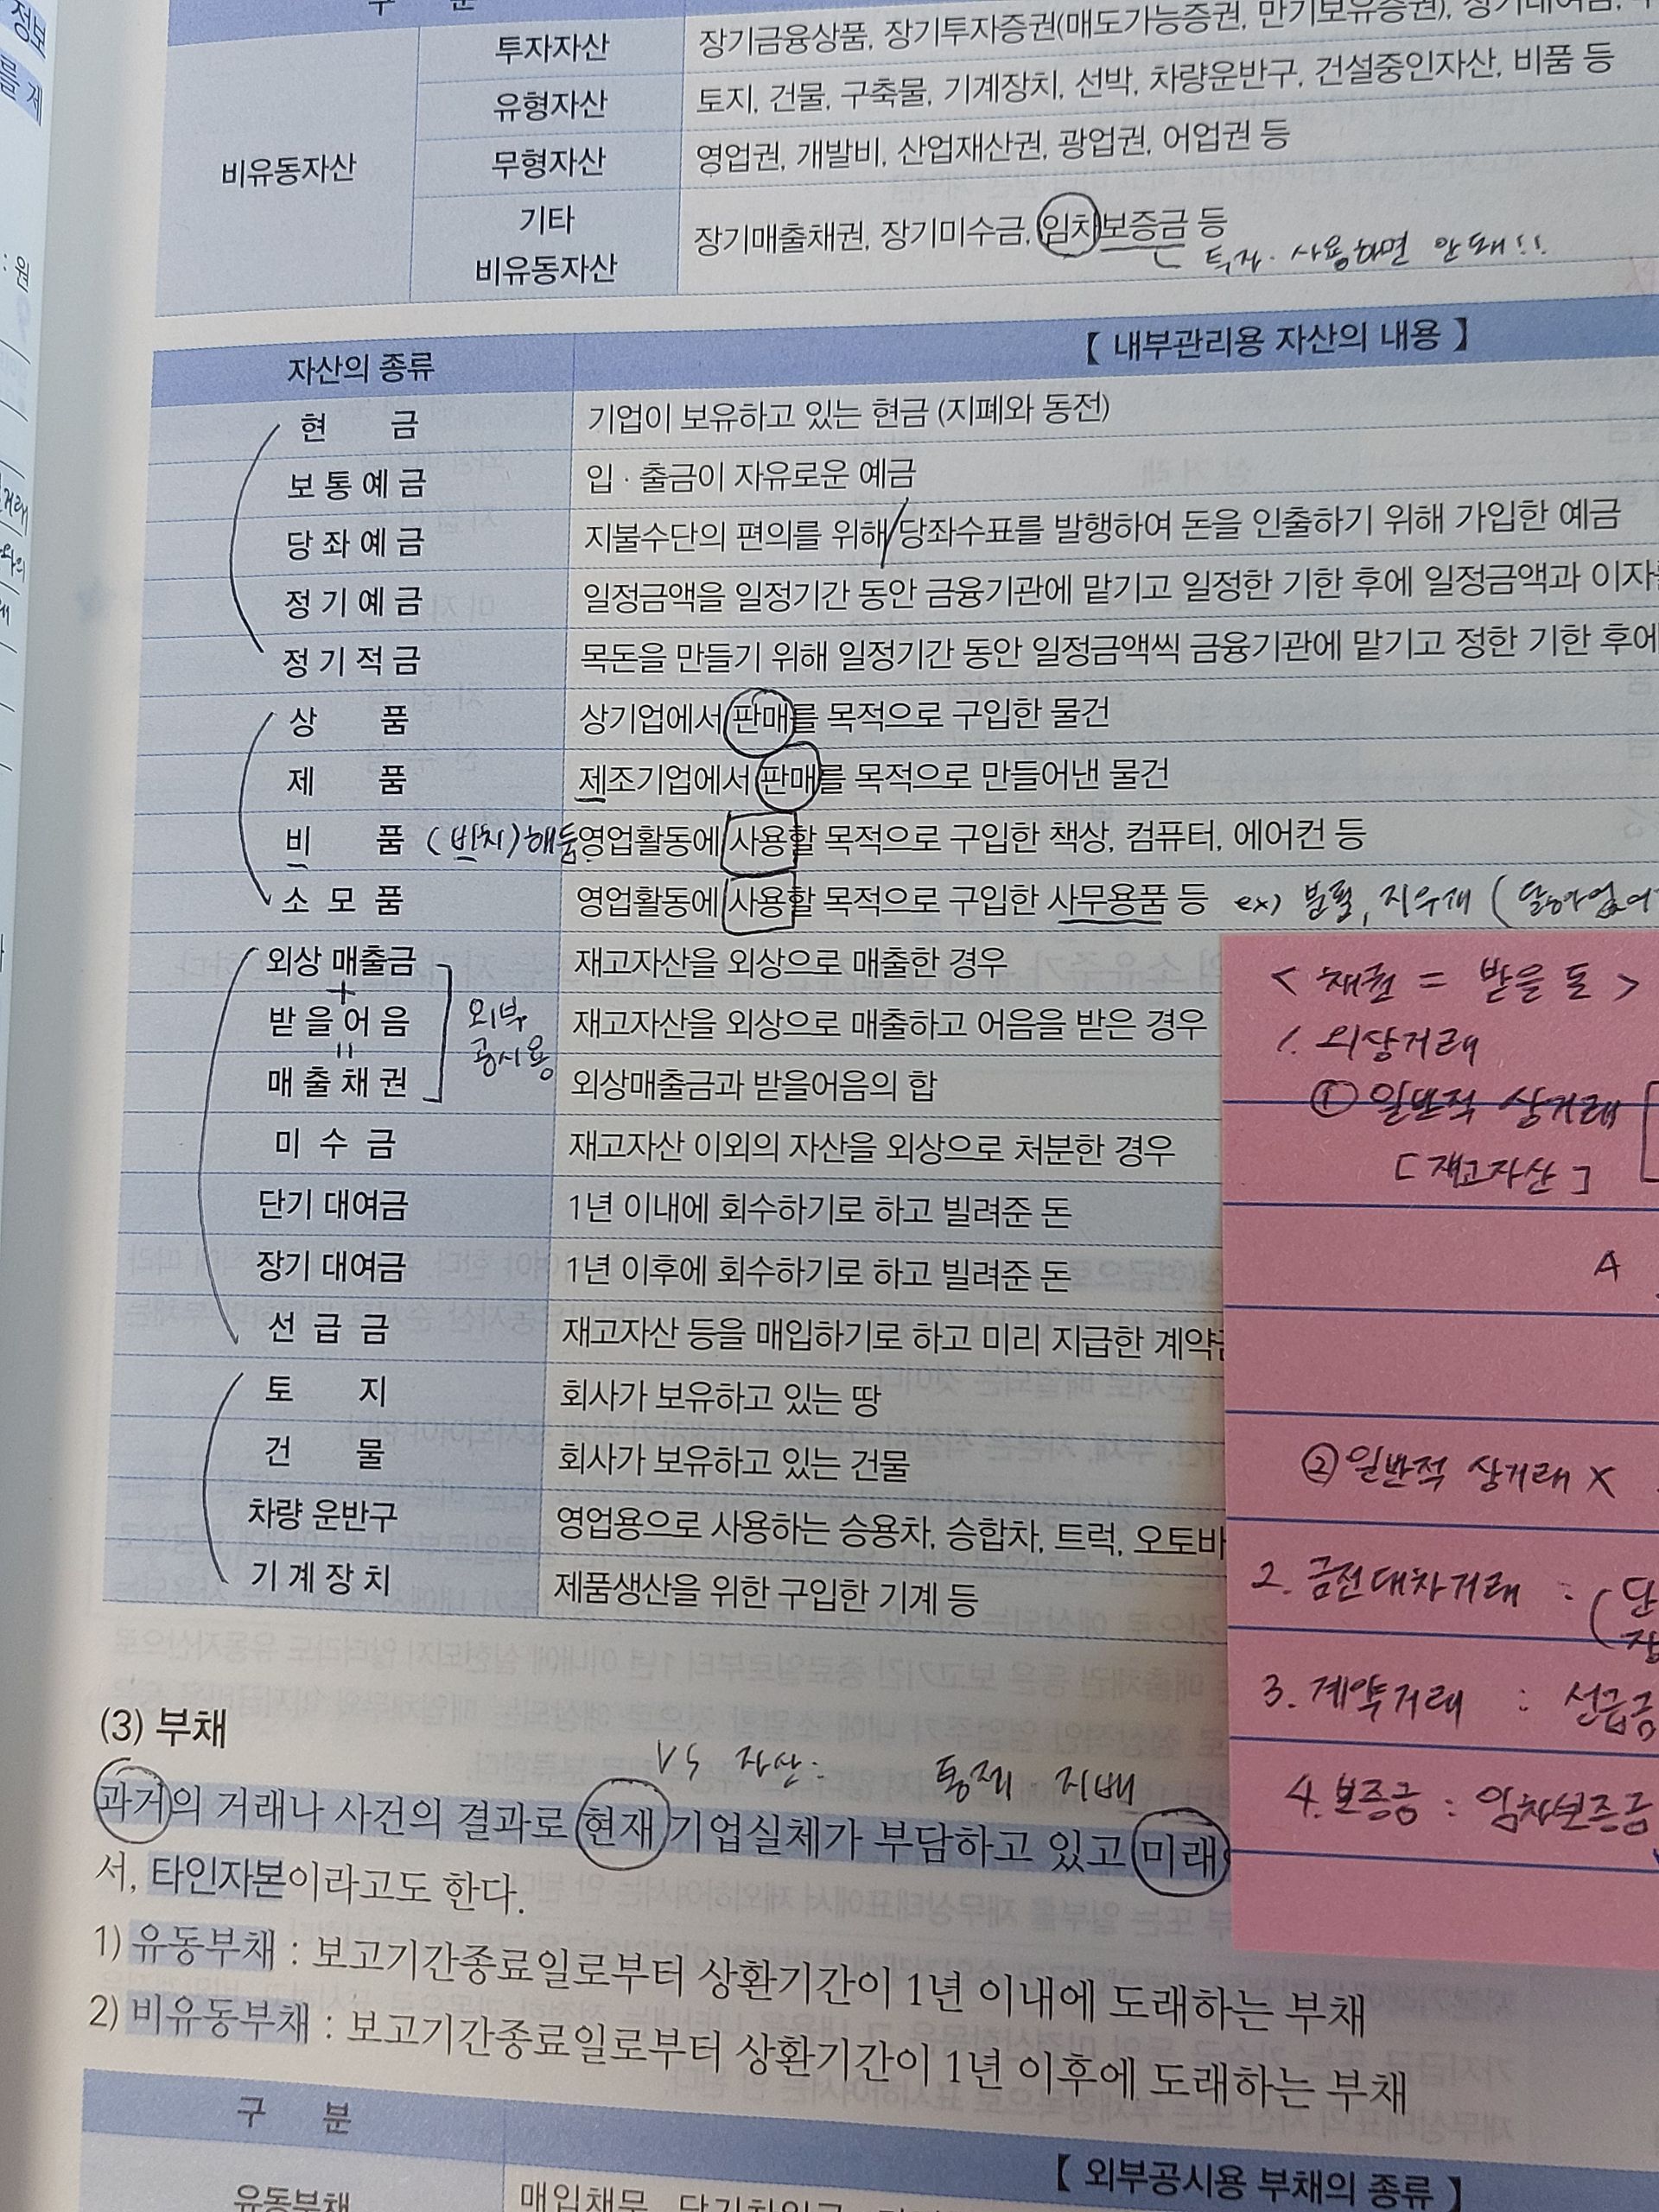 정보
름 제
: 원
구 분
비유동자산
투자자산 장기금융상품, 장기투자증권(매도가능증권, 만기보유증권), 장기대여금,
유형자산 토지, 건물, 구축물, 기계장치, 선박, 차량운반구, 건설중인자산, 비품 등
무형자산 영업권, 개발비, 산업재산권, 광업권, 어업권 등
기타
비유동자산
장기매출채권, 장기미수금, 임차보증금 등
투자·사용하면 안돼!!
자산의 종류 【 내부관리용 자산의 내용 】
현 금 기업이 보유하고 있는 현금 (지폐와 동전)
보 통 예 금 입 · 출금이 자유로운 예금
당 좌 예 금 지불수단의 편의를 위해/당좌수표를 발행하여 돈을 인출하기 위해 가입한 예금
정 기 예 금 일정금액을 일정기간 동안 금융기관에 맡기고 일정한 기한 후에 일정금액과 이자
정 기 적 금 목돈을 만들기 위해 일정기간 동안 일정금액씩 금융기관에 맡기고 정한 기한 후에
상 품 상기업에서 판매를 목적으로 구입한 물건
제 품 제조기업에서 판매를 목적으로 만들어낸 물건
비 품 (비치)해둠. 영업활동에 사용할 목적으로 구입한 책상, 컴퓨터, 에어컨 등
소 모 품 영업활동에 사용할 목적으로 구입한 사무용품 등 ex) 분필, 지우개 (닳아없어
외상 매출금 재고자산을 외상으로 매출한 경우
+
받 을 어 음 재고자산을 외상으로 매출하고 어음을 받은 경우
=
매 출 채 권 외상매출금과 받을어음의 합
외부
공시용
미 수 금 재고자산 이외의 자산을 외상으로 처분한 경우
단기 대여금 1년 이내에 회수하기로 하고 빌려준 돈
장기 대여금 1년 이후에 회수하기로 하고 빌려준 돈
선 급 금 재고자산 등을 매입하기로 하고 미리 지급한 계약
토 지 회사가 보유하고 있는 땅
건 물 회사가 보유하고 있는 건물
차량 운반구 영업용으로 사용하는 승용차, 승합차, 트럭, 오토바
기 계 장 치 제품생산을 위한 구입한 기계 등
< 채권 = 받을 돈 >
1. 외상거래
① 일반적 상거래
[재고자산]
A
② 일반적 상거래 X
2. 금전대차거래 : ( 단
장
3. 계약거래 : 선급금
4. 보증금 : 임차보증금
(3) 부채
VS 자산: 통제·지배
과거의 거래나 사건의 결과로 현재 기업실체가 부담하고 있고 미래
서, 타인자본이라고도 한다.
1) 유동부채 : 보고기간종료일로부터 상환기간이 1년 이내에 도래하는 부채
2) 비유동부채 : 보고기간종료일로부터 상환기간이 1년 이후에 도래하는 부채
구 분 【 외부공시용 부채의 종류 】
유동부채 매입채무, 단기차입금,